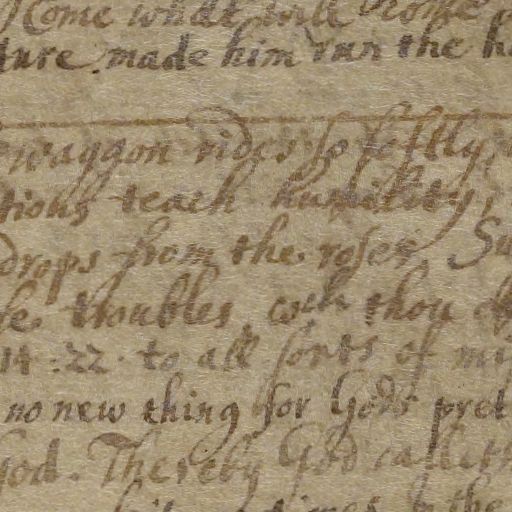 Come what will come
ture made him run the ha
waggon rides so softly,
tions teach humility,
drops from the roses. Su
troubles wch thou
14 : 22 . to all sorts of mi
no new thing for Gods
God. Thereby God calleth
times